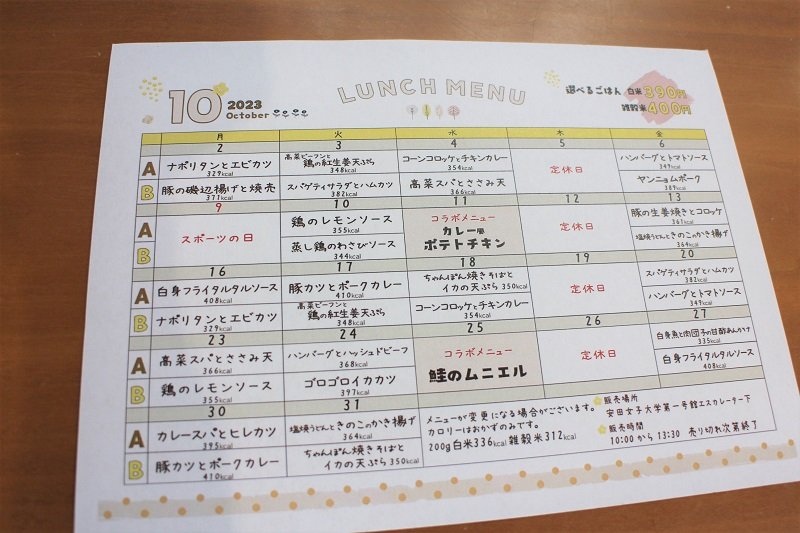 10
2023
October
LUNCH MENU
選べるごはん 白米390円
雑穀米400円
月 火 水 木 金
2 3 4 5 6
A
ナポリタンとエビカツ
329kcal
高菜ビーフンと
鶏の紅生姜天ぷら
348kcal
コーンコロッケとチキンカレー
354kcal
定休日
ハンバーグとトマトソース
349kcal
B
豚の磯辺揚げと焼売
371kcal
スパゲティサラダとハムカツ
382kcal
高菜スパとささみ天
366kcal
ヤンニョムポーク
389kcal
9 10 11 12 13
A
スポーツの日
鶏のレモンソース
355kcal
コラボメニュー
カレー風
ポテトチキン
定休日
豚の生姜焼きとコロッケ
361kcal
B
蒸し鶏のわさびソース
344kcal
塩焼うどんときのこのかき揚げ
364kcal
16 17 18 19 20
A
白身フライタルタルソース
408kcal
豚カツとポークカレー
410kcal
ちゃんぽん焼きそばと
イカの天ぷら 350kcal
定休日
スパゲティサラダとハムカツ
382kcal
B
ナポリタンとエビカツ
329kcal
高菜ビーフンと
鶏の紅生姜天ぷら
348kcal
コーンコロッケとチキンカレー
354kcal
ハンバーグとトマトソース
349kcal
23 24 25 26 27
A
高菜スパとささみ天
366kcal
ハンバーグとハッシュドビーフ
368kcal
コラボメニュー
鮭のムニエル
定休日
白身魚と肉団子の甘酢あんかけ
335kcal
B
鶏のレモンソース
355kcal
ゴロゴロイカカツ
397kcal
白身フライタルタルソース
408kcal
30 31
A
カレースパとヒレカツ
395kcal
塩焼うどんときのこのかき揚げ
364kcal
B
豚カツとポークカレー
410kcal
ちゃんぽん焼きそばと
イカの天ぷら 350kcal
メニューが変更になる場合がございます。
カロリーはおかずのみです。
200g白米336kcal 雑穀米312kcal
販売場所
安田女子大学第一号館エスカレーター下
販売時間
10:00から13:30 売り切れ次第終了